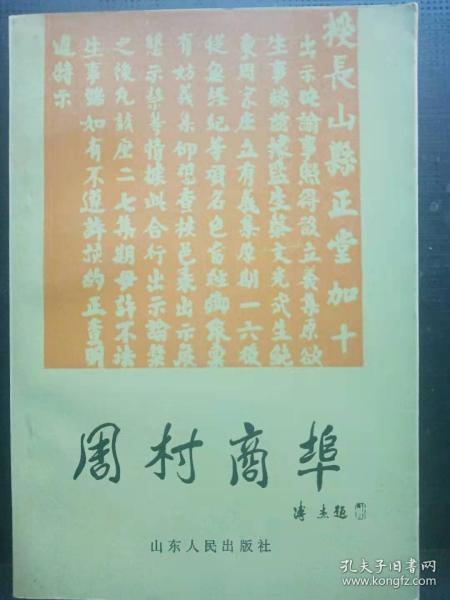 授長山縣正堂加十
出示曉諭事照得設立義集原欲
生事端據監生蔡文光武生鮑
東周家庄立有義集原期一六復
從無經紀等項名色旨經御眾棄
有妨義集仰忽查核邑棄出示嚴
墾示禁等情據此合行出示諭禁
之後凡該庄二七集期毋許不法
生事端如有不遵許預約正查明
遵特示
周村商埠
溥杰题
山东人民出版社
孔夫子旧书网
www.kongfz.com